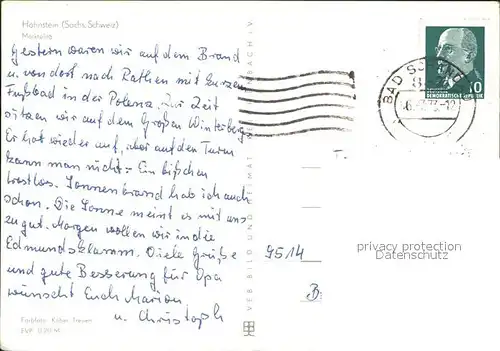 Hohnstein (Sächs. Schweiz)
Gestern waren wir auf dem Brand
u. von dort nach Rathen mit kurzem
Fußbad in der Polenz. Zur Zeit
sitzen wir auf dem Großen Winterberg.
Er hat wieder auf, aber auf den Turm
kann man nicht. Ein bißchen
trostlos. Sonnenbrand hab ich auch
schon. Die Sonne meint es mit uns
zu gut. Morgen wollen wir in die
Edmundsklamm. Viele Grüße
und gute Besserung für Opa
wünscht Euch Marion
u. Christoph
VEB BILD UND HEIMAT REICHENBACH i. V.
BAD
10
DEUTSCHE DEMOKRATISCHE REPUBLIK
9514
B:
privacy protection
Datenschutz